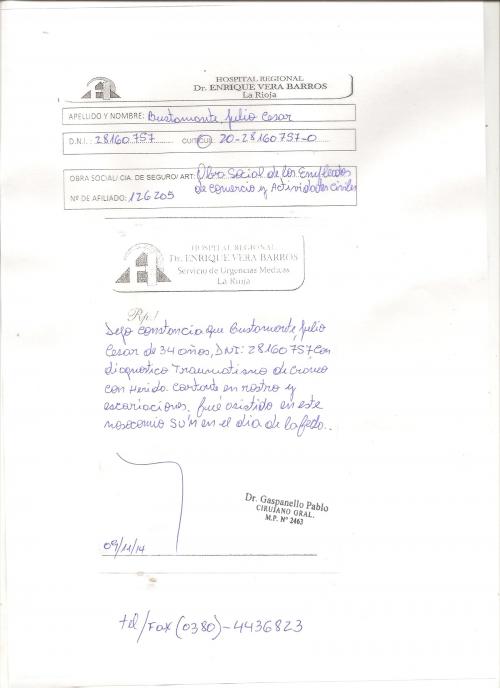 HOSPITAL REGIONAL
Dr. ENRIQUE VERA BARROS
La Rioja
APELLIDO Y NOMBRE: Bustamante, Julio Cesar
D.N.I.: 28160757 CUIT/CUIL 20-28160757-0
OBRA SOCIAL/ CIA. DE SEGURO/ ART: Obra Social de los Empleados
de Comercio y Actividades Civiles
Nº DE AFILIADO: 126205
HOSPITAL REGIONAL
Dr. ENRIQUE VERA BARROS
Servicio de Urgencias Médicas
La Rioja
Rp./
Dejo constancia que Bustamante, Julio
Cesar de 34 años, DNI: 28160757 con
diagnostico Traumatismo de craneo
con Herida cortante en rostro y
escoriaciones. fué asistido en este
nosocomio SUM en el dia de la fecha.
Dr. Gaspanello Pablo
CIRUJANO GRAL.
M.P. Nº 2463
09/11/14
tel/Fax (0380)-4436823